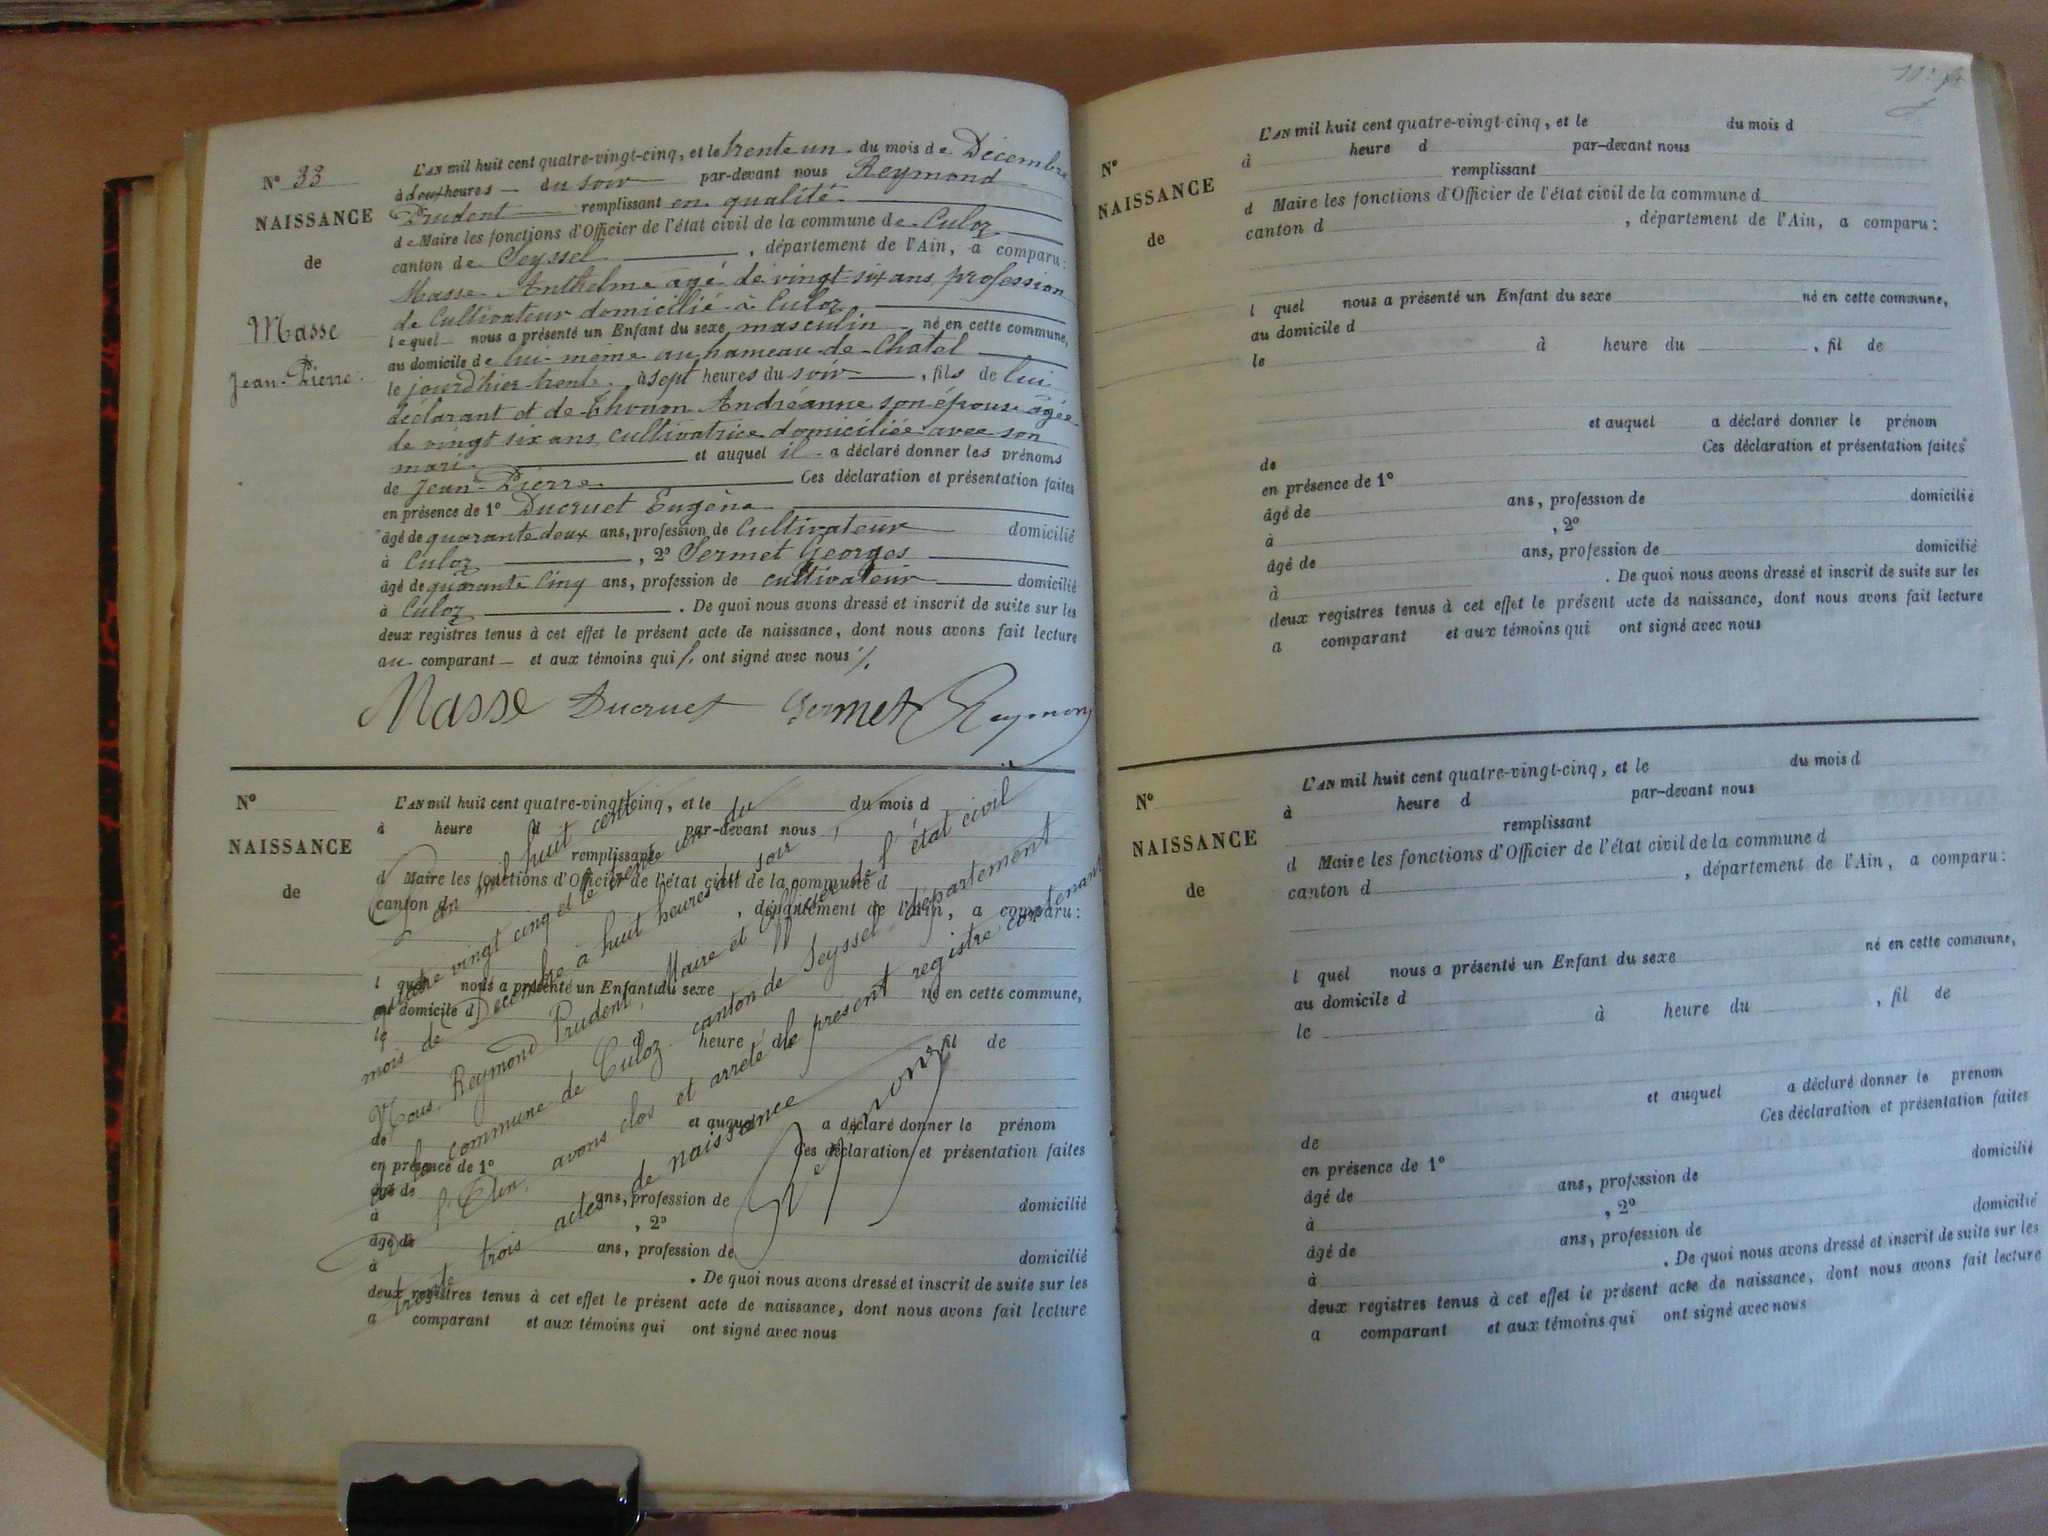 N° 33
NAISSANCE
de
Masse
Jean-Pierre
L'AN mil huit cent quatre-vingt-cinq, et le trente un du mois de Décembre
à deux heures du soir par-devant nous Reymond
Prudent remplissant en qualité
de Maire les fonctions d'Officier de l'état civil de la commune de Culoz
canton de Seyssel, département de l'Ain, a comparu:
Masse Anthelme âgé de vingt-six ans, profession
de Cultivateur domicilié à Culoz
lequel nous a présenté un Enfant du sexe masculin né en cette commune,
au domicile de lui-même au hameau de Chatel
le jourdhier trente à sept heures du soir, fils de lui
déclarant et de Thonon Andréanne son épouse âgée
de vingt six ans, cultivatrice domiciliée avec son
mari et auquel il a déclaré donner les prénoms
de Jean-Pierre Ces déclaration et présentation faites
en présence de 1° Ducruet Eugène
âgé de quarante deux ans, profession de Cultivateur domicilié
à Culoz, 2° Sermet Georges
âgé de quarante cinq ans, profession de cultivateur domicilié
à Culoz. De quoi nous avons dressé et inscrit de suite sur les
deux registres tenus à cet effet le présent acte de naissance, dont nous avons fait lecture
au comparant et aux témoins qui ont signé avec nous
Masse Ducruet Sermet Reymond
N°
NAISSANCE
de
L'AN mil huit cent quatre-vingt-cinq, et le du mois d
à heure d par-devant nous
remplissant
d Maire les fonctions d'Officier de l'état civil de la commune d
canton d, département de l'Ain, a comparu:
l quel nous a présenté un Enfant du sexe né en cette commune,
au domicile d
le à heure du, fil de
et auquel a déclaré donner le prénom
de Ces déclaration et présentation faites
en présence de 1°
âgé de ans, profession de domicilié
à, 2°
âgé de ans, profession de domicilié
à. De quoi nous avons dressé et inscrit de suite sur les
deux registres tenus à cet effet le présent acte de naissance, dont nous avons fait lecture
a comparant et aux témoins qui ont signé avec nous
L'an mil huit cent
quatre vingt cinq et le trente un du
mois de Décembre à huit heures du soir
Nous Reymond Prudent, Maire et officier de l'état civil
de la commune de Culoz canton de Seyssel département
de l'Ain, avons clos et arrêté le présent registre contenant
trente trois actes de naissance
Reymond
N°
NAISSANCE
de
L'AN mil huit cent quatre-vingt-cinq, et le du mois d
à heure d par-devant nous
remplissant
d Maire les fonctions d'Officier de l'état civil de la commune d
canton d, département de l'Ain, a comparu:
l quel nous a présenté un Enfant du sexe né en cette commune,
au domicile d
le à heure du, fil de
et auquel a déclaré donner le prénom
de Ces déclaration et présentation faites
en présence de 1°
âgé de ans, profession de domicilié
à, 2°
âgé de ans, profession de domicilié
à. De quoi nous avons dressé et inscrit de suite sur les
deux registres tenus à cet effet le présent acte de naissance, dont nous avons fait lecture
a comparant et aux témoins qui ont signé avec nous
N°
NAISSANCE
de
L'AN mil huit cent quatre-vingt-cinq, et le du mois d
à heure d par-devant nous
remplissant
d Maire les fonctions d'Officier de l'état civil de la commune d
canton d, département de l'Ain, a comparu:
l quel nous a présenté un Enfant du sexe né en cette commune,
au domicile d
le à heure du, fil de
et auquel a déclaré donner le prénom
de Ces déclaration et présentation faites
en présence de 1°
âgé de ans, profession de domicilié
à, 2°
âgé de ans, profession de domicilié
à. De quoi nous avons dressé et inscrit de suite sur les
deux registres tenus à cet effet le présent acte de naissance, dont nous avons fait lecture
a comparant et aux témoins qui ont signé avec nous